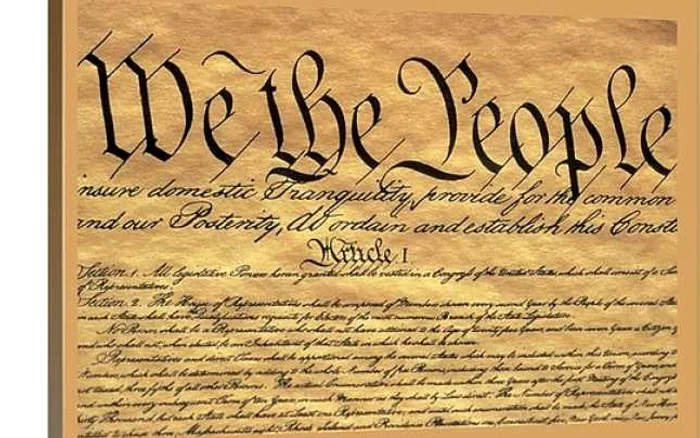 We the People
insure domestic Tranquility, provide for the common
and our Posterity, do ordain and establish this Constit
Article. I.
Section. 1. All legislative Powers herein granted shall be vested in a Congress of the United States, which shall consist of a Sen
of Representatives.
Section. 2. The House of Representatives shall be composed of Members chosen every second Year by the People of the several States
in each State shall have the Qualifications requisite for Electors of the most numerous Branch of the State Legislature.
No Person shall be a Representative who shall not have attained to the Age of twenty five Years, and been seven Years a Citizen
and who shall not, when elected, be an Inhabitant of that State in which he shall be chosen.
Representatives and direct Taxes shall be apportioned among the several States which may be included within this Union, according to
Numbers, which shall be determined by adding to the whole Number of free Persons, including those bound to Service for a Term of Years, and
not taxed, three fifths of all other Persons. The actual Enumeration shall be made within three Years after the first Meeting of the Congress
and within every subsequent Term of ten Years, in such Manner as they shall by Law direct. The Number of Representatives shall not
thirty Thousand, but each State shall have at Least one Representative; and until such enumeration shall be made, the State of New Ham
entitled to chuse three, Massachusetts eight, Rhode Island and Providence Plantations one, Connecticut five, New York six, New Jersey